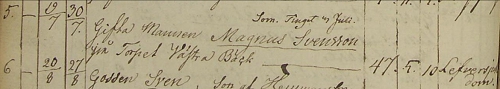 5. 19/7 30/7. Som. Tingst. 4 Juli.
Gifta Mannen Magnus Svensson
på Torpet Västra Bäck — 47. 5. 10 Lefversjuk
6 — 20/8 27/8 Gossen Sven, Son af
dom.